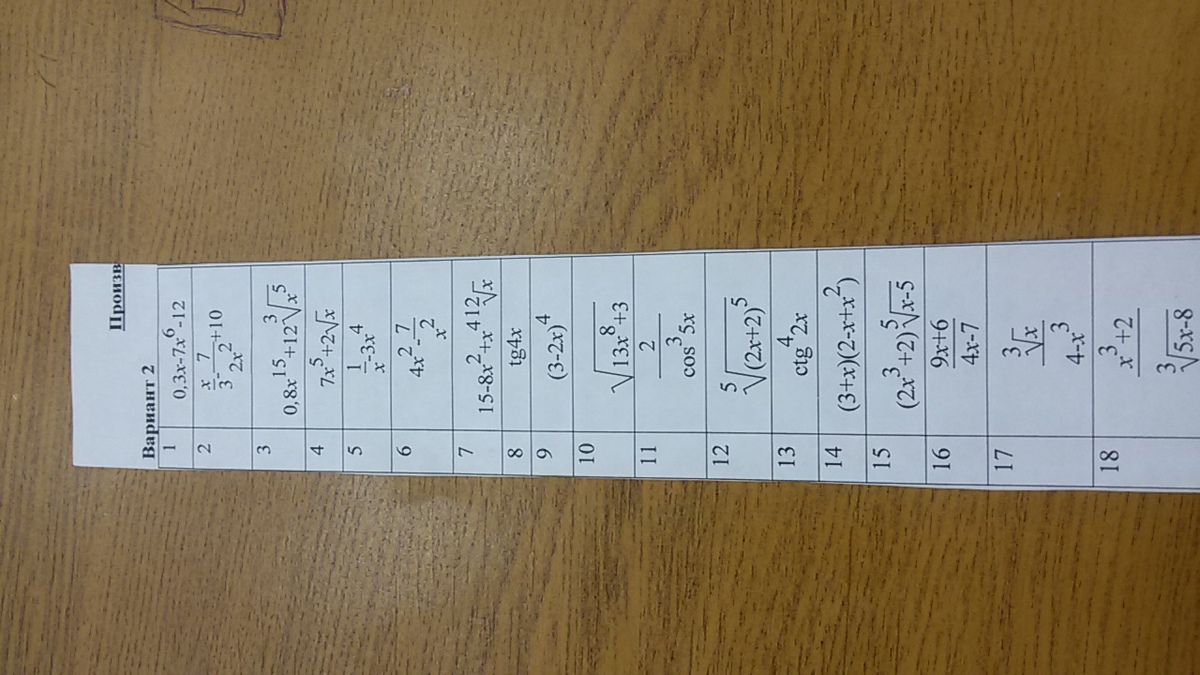 Произв
Вариант 2
1 0,3x-7x⁶-12
2 x/3-7/(2x²)+10
3 0,8x¹⁵+12∛(x⁵)
4 7x⁵+2√x
5 1/x-3x⁴
6 4x²-7/x²
7 15-8x²+x⁴ ¹²√x
8 tg4x
9 (3-2x)⁴
10 √(13x⁸+3)
11 2/(cos³5x)
12 ⁵√((2x+2)⁵)
13 ctg⁴2x
14 (3+x)(2-x+x²)
15 (2x³+2)⁵√(x-5)
16 (9x+6)/(4x-7)
17 ∛x/(4-x³)
18 (x³+2)/∛(5x-8)